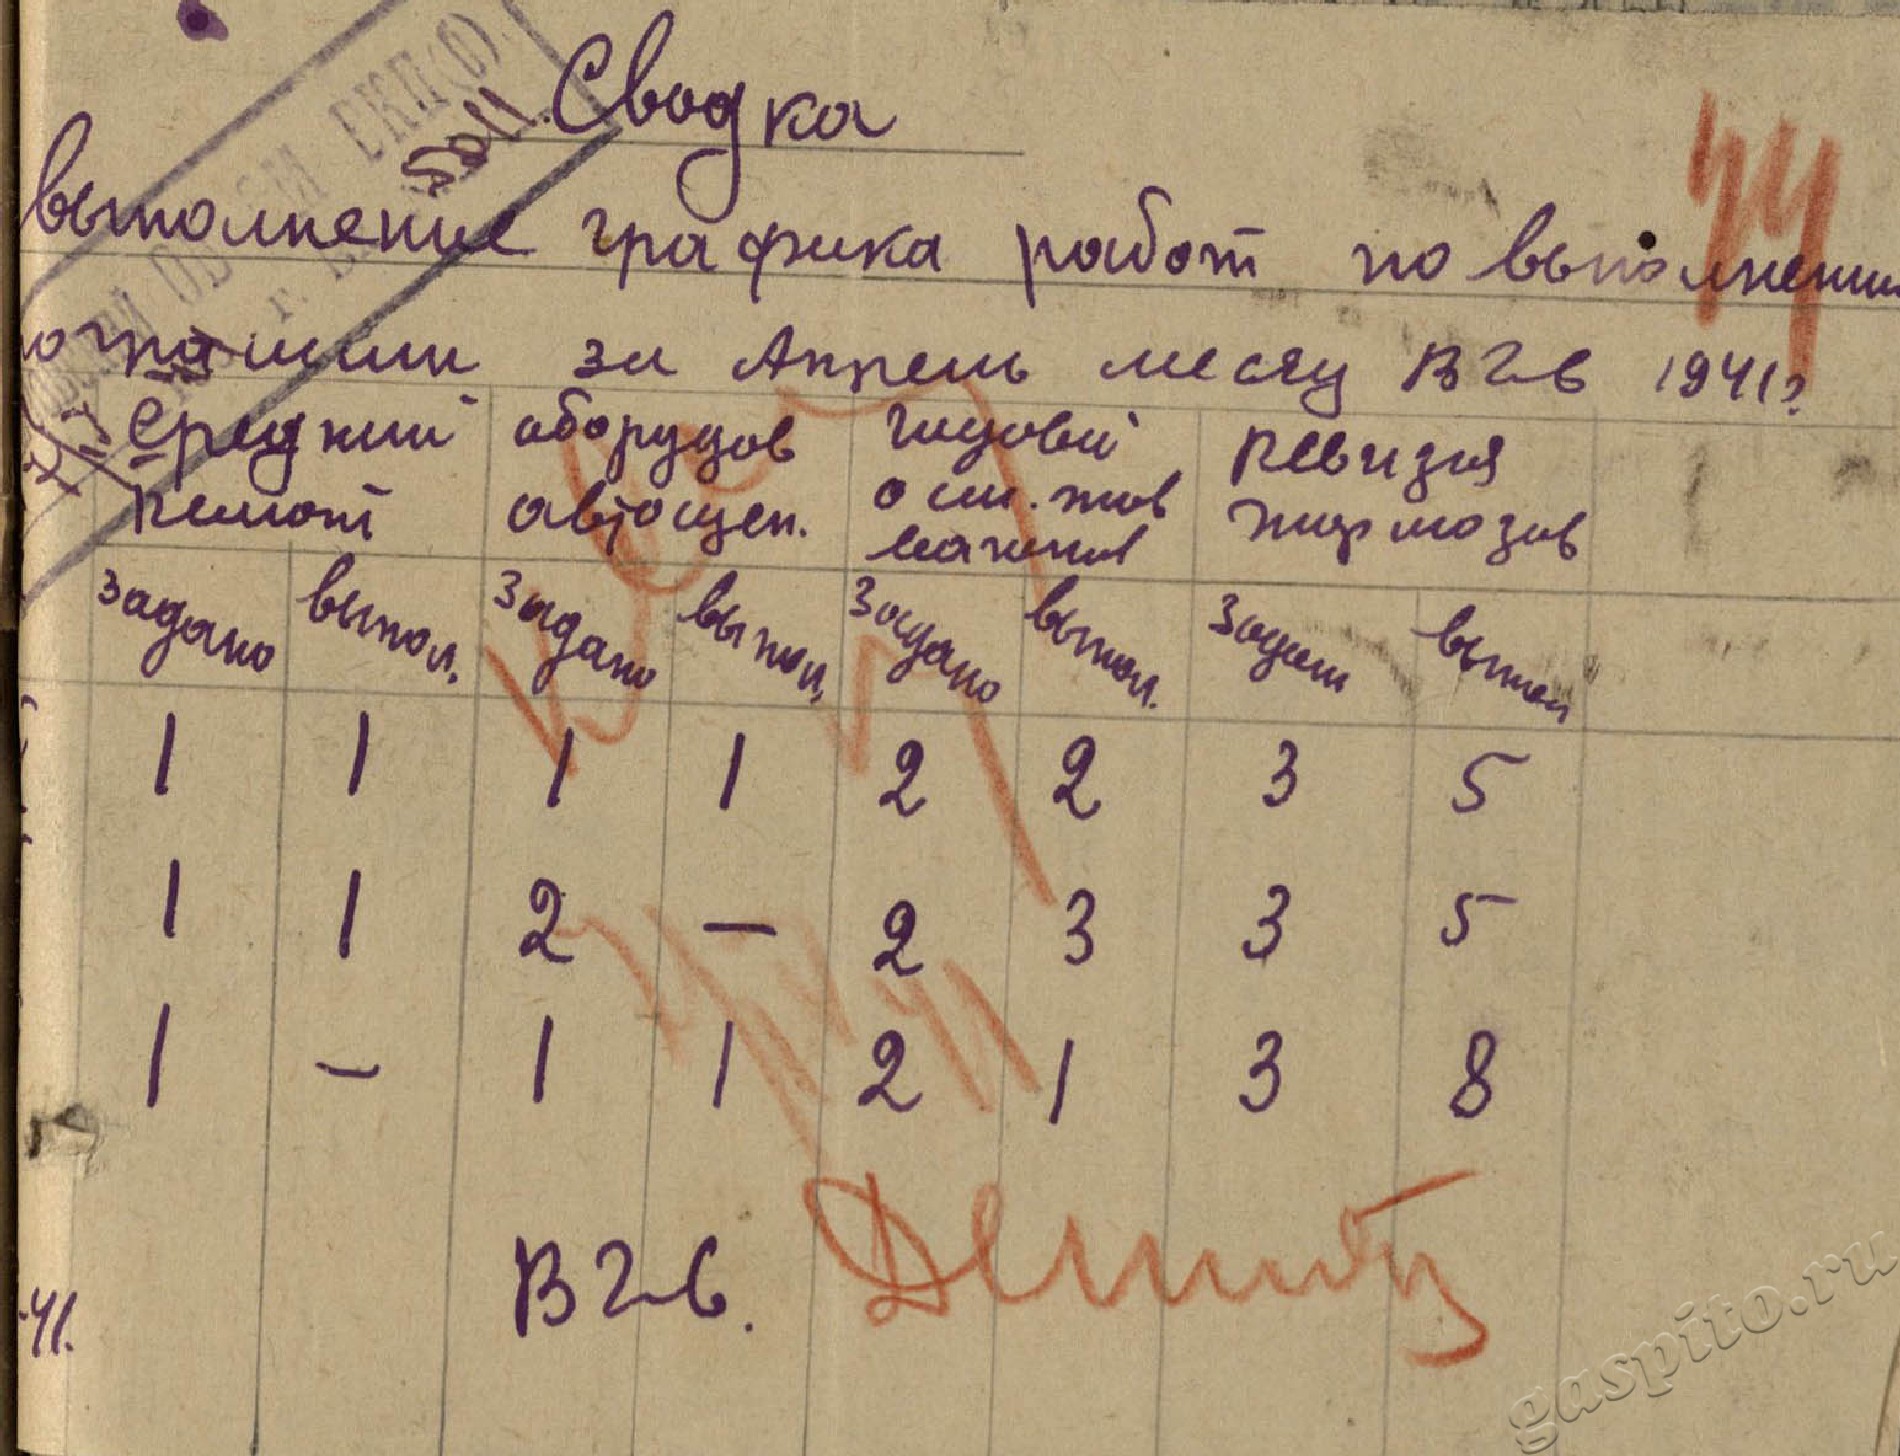 Сводка
выполнение графика работ по выполнени
за Апрель месяц ВЧГ 1941г
Средний оборудов годовой Ревизия
ремонт автосцеп. осм. тов тормозов
вагонов
задано выпол. задано выпол. задано выпол. задан выпол
1 1 1 1 2 2 3 5
1 1 2 – 2 3 3 5
1 – 1 1 2 1 3 8
41.
gaspito.ru